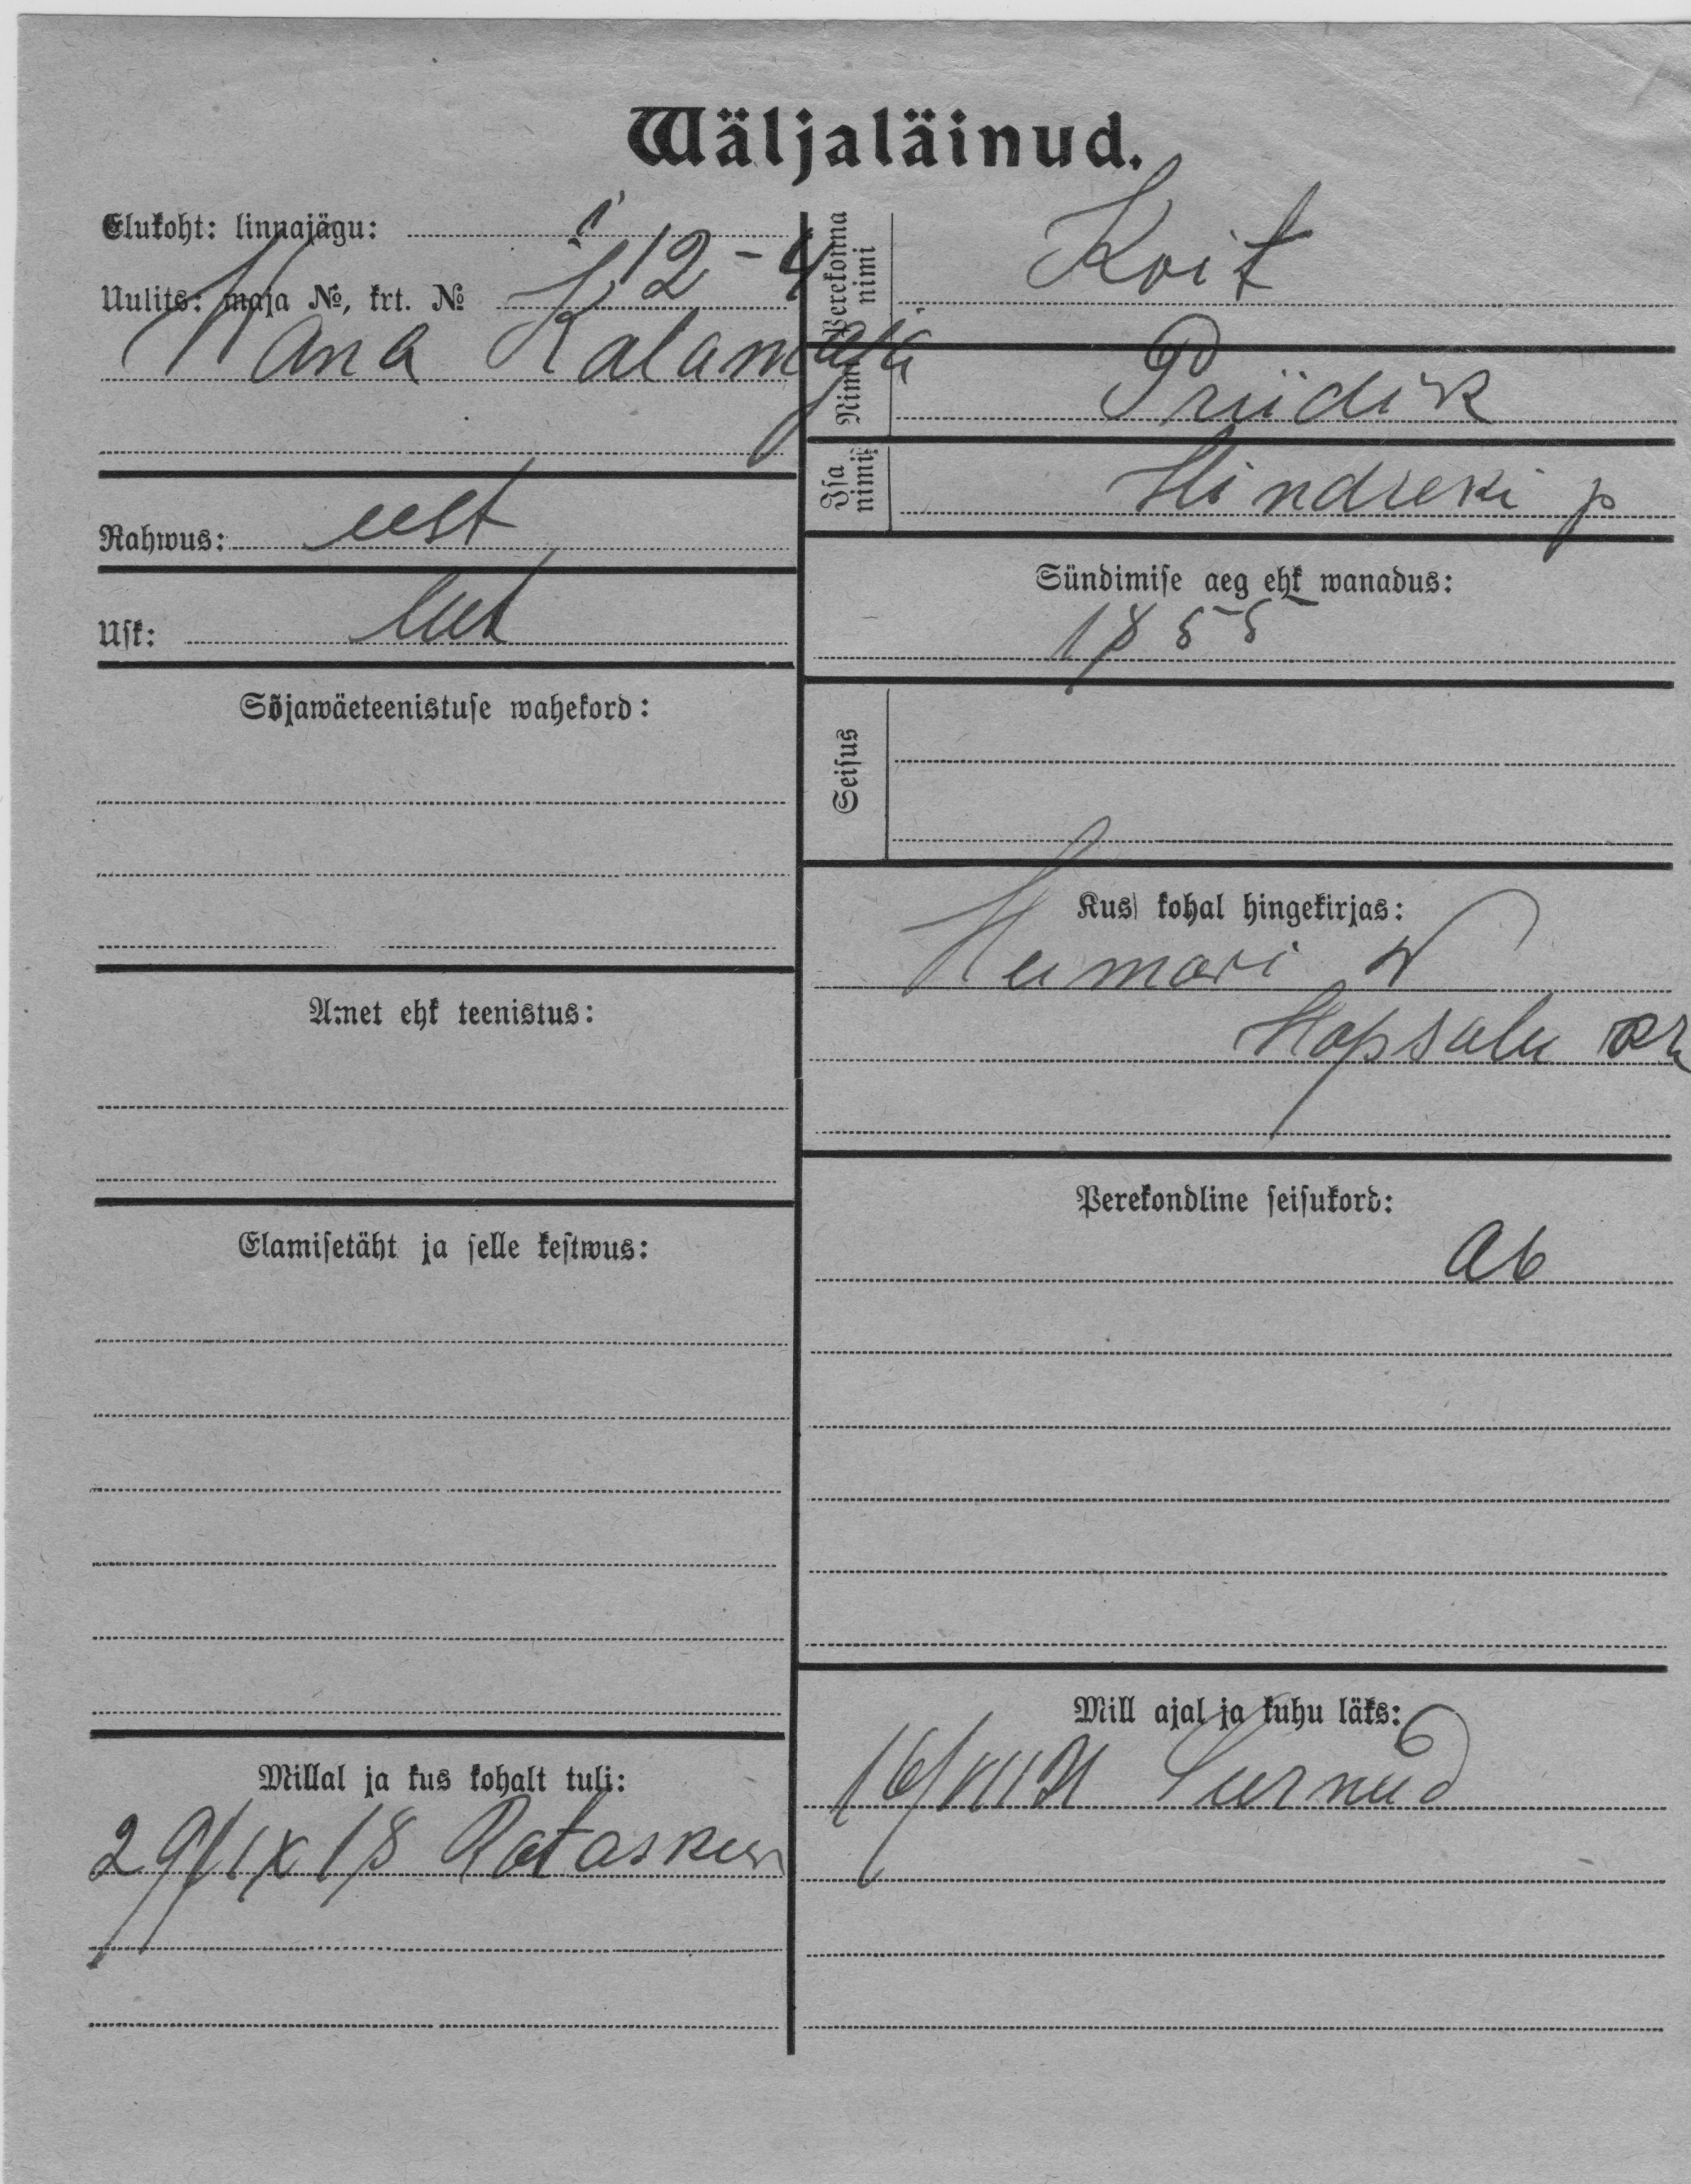 Wäljaläinud.
Elukoht: linnajägu:
Uulits: maja №, krt. № 12-4
Wana Kalamaja
Rahwus: eest
Usk: lut
Sõjawäeteenistuse wahekord:
Amet ehk teenistus:
Elamisetäht ja selle kestwus:
Millal ja kus kohalt tuli:
29/IX 18 Rataskaew
Perekonna nimi Koit
Nimi Priidik
Isa nimi Hindreki p
Sündimise aeg ehk wanadus:
1855
Seisus
Kus kohal hingekirjas:
W
Hapsalu kr
Perekondline seisukord:
Ab
Mill ajal ja kuhu läks:
16/VII 21 Surnud